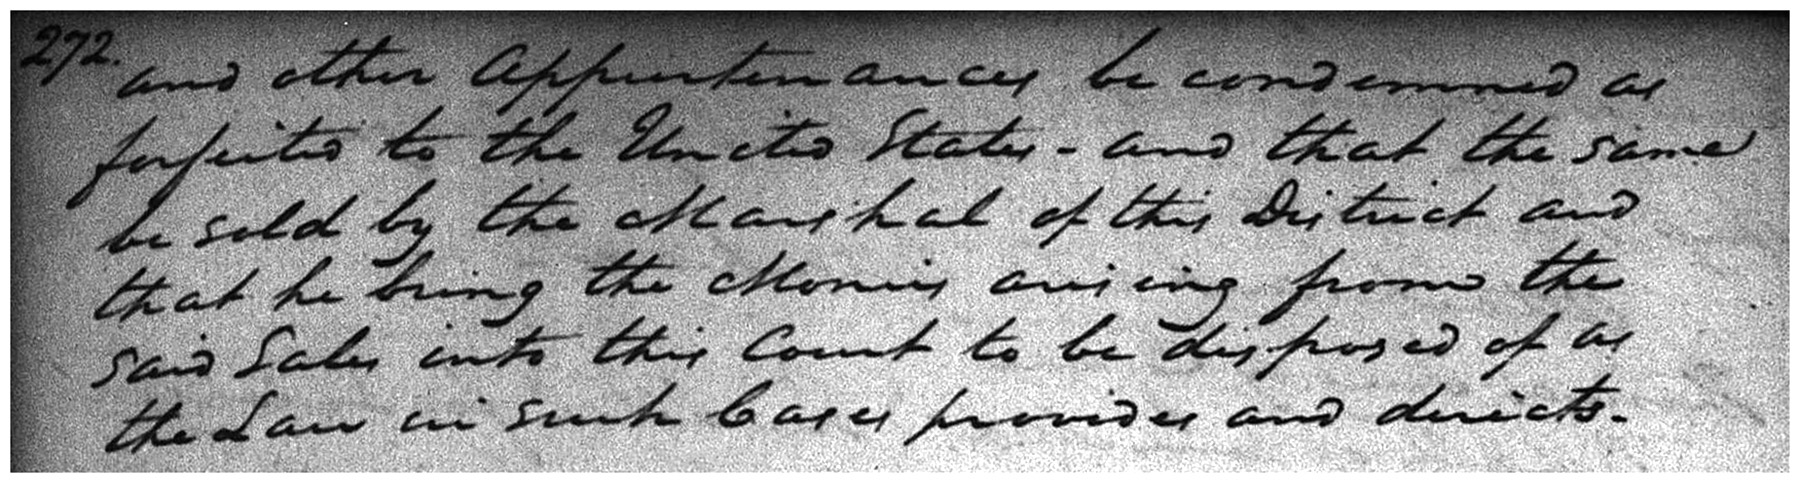 272. and other Appurtenances be condemned as
forfeited to the United States - and that the same
be sold by the Marshal of this District and
that he bring the Monies arising from the
said Sales into this Court to be disposed of as
the Law in such Cases provides and directs.